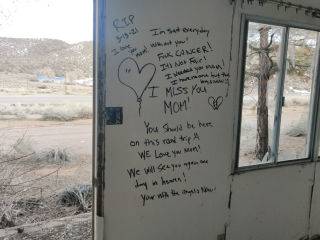 RIP
I'm sad everyday
without you!
Fuck CANCER!
It's Not Fair!
I needed you mom!
I MISS YOU
MOM!
You Should be here
on this road trip
WE Love you mom!
We will SEE you again one
day in heaven!
Your with the angels Now.